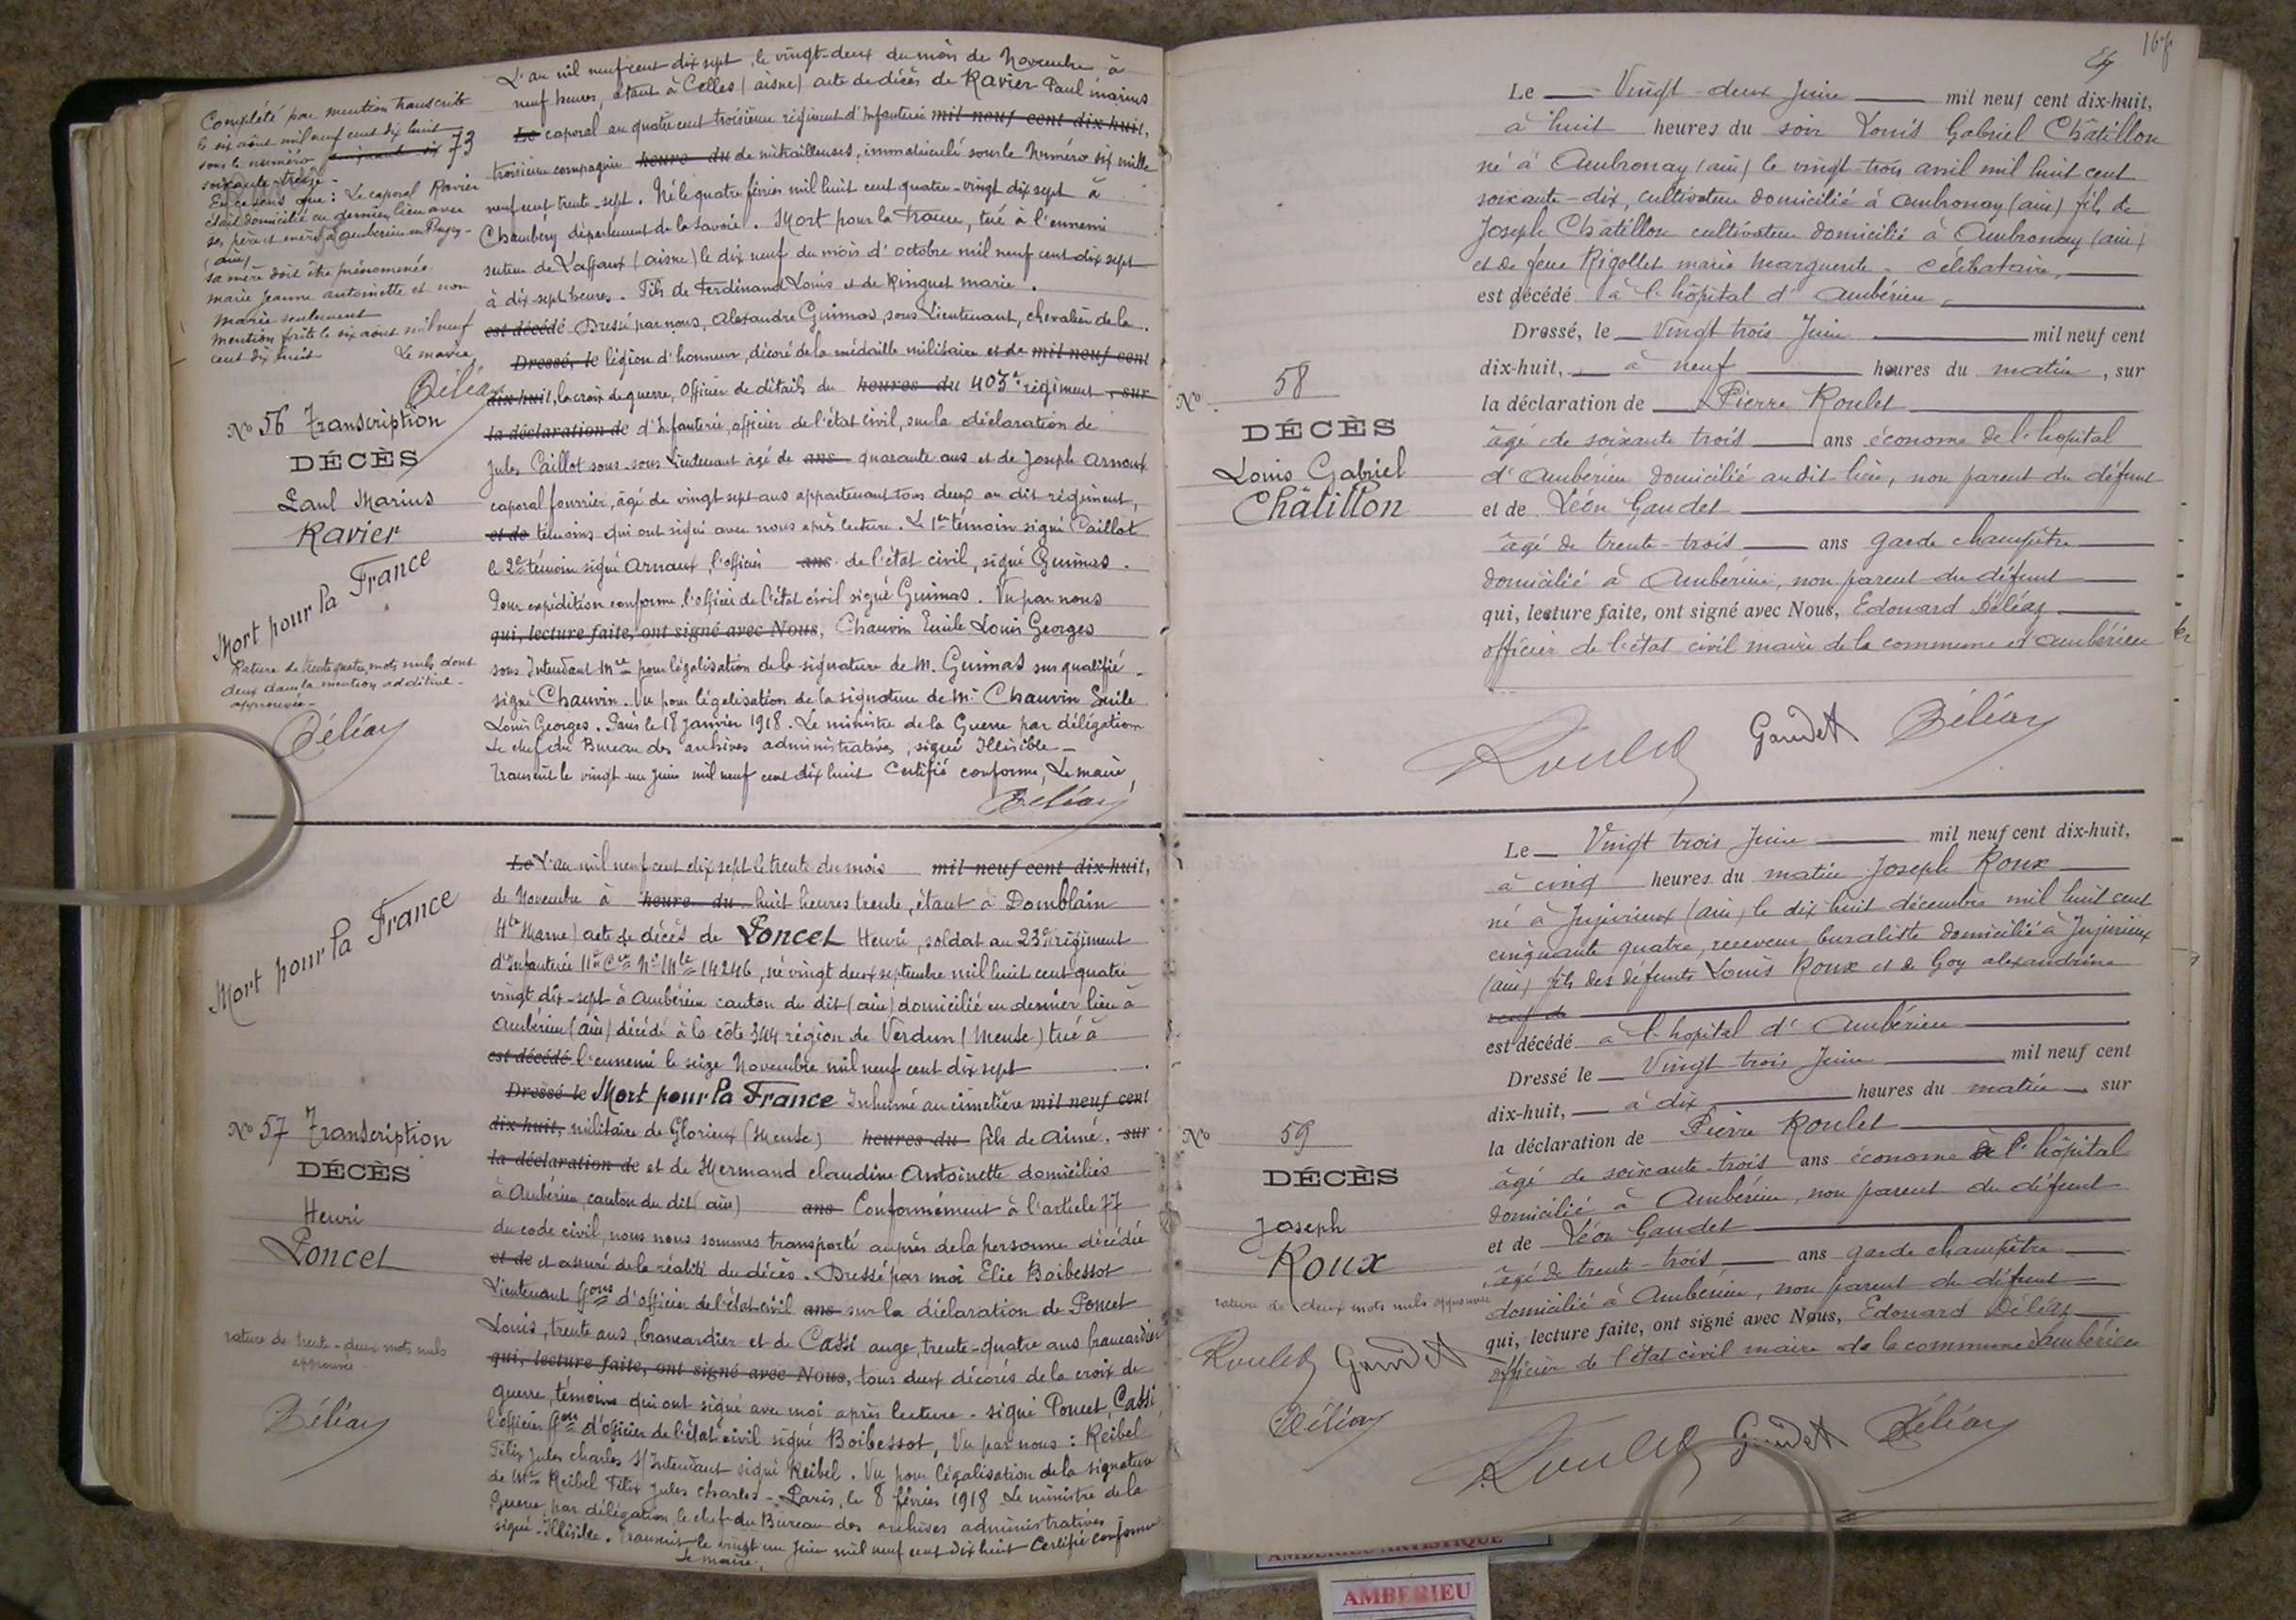 Complété par mention transcrite
le six août mil neuf cent dix huit
sous le numéro cinquante six 73
soixante-treize -
En ce sens que : Le caporal Ravier
était domicilié en dernier lieu avec
ses père et mère à Ambérieu en Bugey-
(ain)
sa mère doit être prénommée
marie Jeanne antoinette et non
marie seulement
mention faite le six août mil neuf
cent dix huit Le maire
Béléaz
N° 56 Transcription
DÉCÈS
Paul Marius
Ravier
Mort pour la France
Rature de trente quatre mots nuls dont
deux dans la mention additive -
approuvée -
Béléaz
L'an mil neuf cent dix sept, le vingt-deux du mois de Novembre à
neuf heures, étant à Celles (aisne) acte de décès de Ravier Paul marius
Le caporal au quatre cent troisième régiment d'Infanterie mil neuf cent dix huit,
troisième compagnie heure du de mitrailleuses, immatriculé sous le Numéro six mille
neuf cent trente-sept. Né le quatre février mil huit cent quatre-vingt dix sept à
Chambéry département de la Savoie. Mort pour la France, tué à l'ennemi
secteur de Laffaux (aisne) le dix neuf du mois d'octobre mil neuf cent dix sept
à dix-sept heures. Fils de Ferdinand Louis et de Ringuet marie.
est décédé Dressé par nous, Alexandre Guimas, sous Lieutenant, chevalier de la
Dressé, le légion d'honneur, décoré de la médaille militaire et de mil neuf cent
dix-huit, la croix de guerre, Officier de détails du heures du 403e régiment, sur
la déclaration de d'Infanterie, officier de l'état civil, sur la déclaration de
Jules Caillot sous-sous Lieutenant âgé de ans quarante ans et de Joseph Arnoux
caporal fourrier, âgé de vingt sept ans appartenant tous deux au dit régiment,
et de témoins qui ont signé avec nous après lecture. Le 1er témoin signé Caillot
le 2e témoin signé Arnoux, l'officier ans de l'état civil, signé Guimas.
Pour expédition conforme, l'officier de l'état civil signé Guimas. Vu par nous
qui, lecture faite, ont signé avec Nous, Chauvin Emile Louis Georges
sous Intendant Mre pour légalisation de la signature de M. Guimas sus qualifié -
signé Chauvin. Vu pour légalisation de la signature de Mr Chauvin Emile
Louis Georges. Paris le 18 janvier 1918. Le ministre de la Guerre par délégation
Le chef du Bureau des archives administratives, signé Illisible -
Transcrit le vingt un Juin mil neuf cent dix huit Certifié conforme, Le maire,
Béléaz
Mort pour la France
N° 57 Transcription
DÉCÈS
Henri
Poncet
rature de trente-deux mots nuls
approuvée
Béléaz
Le L'an mil neuf cent dix sept le trente du mois mil neuf cent dix-huit,
de Novembre à heure du huit heures trente, étant à Domblain
(Hte Marne) acte de décès de Poncet Henri, soldat au 23e régiment
d'Infanterie 11e Cie N° Mle 14246, né vingt deux septembre mil huit cent quatre
vingt dix-sept à Ambérieu canton du dit (ain) domicilié en dernier lieu à
Ambérieu (ain) décédé à la côte 344 région de Verdun (Meuse) tué à
est décédé l'ennemi le seize Novembre mil neuf cent dix sept
Dressé le Mort pour la France Inhumé au cimetière mil neuf cent
dix-huit, militaire de Glorieux (Meuse) heures du fils de Aimé, sur
la déclaration de et de Mermand claudine Antoinette domiciliés
à Ambérieu, canton du dit (ain) ans Conformément à l'article 77
du code civil, nous nous sommes transporté auprès de la personne décédée
et de et assuré de la réalité du décès. Dressé par moi Elie Boibessot
Lieutenant ffons d'officier de l'état civil ans sur la déclaration de Poncet
Louis, trente ans, brancardier et de Cassi ange, trente-quatre ans brancardier
qui, lecture faite, ont signé avec Nous, tous deux décorés de la croix de
guerre, témoins qui ont signé avec moi après lecture - signé Poncet, Cassi,
l'officier ffons d'officier de l'état civil signé Boibessot, Vu par nous : Reibel
Félix Jules charles S/Intendant signé Reibel. Vu pour légalisation de la signature
de Mr Reibel Félix Jules charles - Paris, le 8 février 1918 Le ministre de la
Guerre, par délégation, le chef du Bureau des archives administratives
signé - Illisible. Transcrit le vingt un Juin mil neuf cent dix huit Certifié conforme
Le maire,
167
Le Vingt-deux Juin mil neuf cent dix-huit,
à huit heures du soir Louis Gabriel Châtillon
né à Ambronay (ain) le vingt-trois avril mil huit cent
soixante-dix, cultivateur domicilié à Ambronay (ain) fils de
Joseph Châtillon cultivateur domicilié à Ambronay (ain)
et de feue Rigollet marie Marguerite - célibataire,
est décédé à l'hôpital d'Ambérieu,
Dressé, le Vingt trois Juin mil neuf cent
dix-huit, à neuf heures du matin, sur
la déclaration de Pierre Roulet
âgé de soixante trois ans économe de l'hôpital
d'Ambérieu domicilié au dit lieu, non parent du défunt
et de Léon Gaudet
âgé de trente-trois ans garde champêtre
domicilié à Ambérieu, non parent du défunt
qui, lecture faite, ont signé avec Nous, Edouard Béléaz
officier de l'état civil maire de la commune d'Ambérieu
N° 58
DÉCÈS
Louis Gabriel
Châtillon
Roulet Gaudet Béléaz
Le Vingt trois Juin mil neuf cent dix-huit,
à cinq heures du matin Joseph Roux
né à Jujurieux (ain) le dix huit décembre mil huit cent
cinquante quatre, receveur buraliste domicilié à Jujurieux
(ain) fils des défunts Louis Roux et de Goy alexandrine
veuf de
est décédé à l'hopital d'Ambérieu
Dressé le Vingt-trois Juin mil neuf cent
dix-huit, à dix heures du matin sur
la déclaration de Pierre Roulet
âgé de soixante-trois ans économe de l'hôpital
domicilié à Ambérieu, non parent du défunt
et de Léon Gaudet
âgé de trente-trois ans garde champêtre
domicilié à Ambérieu, non parent du défunt
qui, lecture faite, ont signé avec Nous, Edouard Béléaz
officier de l'état civil maire de la commune d'Ambérieu
N° 59
DÉCÈS
Joseph
Roux
rature de deux mots nuls approuvée
Roulet Gaudet
Béléaz
Roulet Gaudet Béléaz
AMBERIEU ARTISTIQUE
AMBERIEU